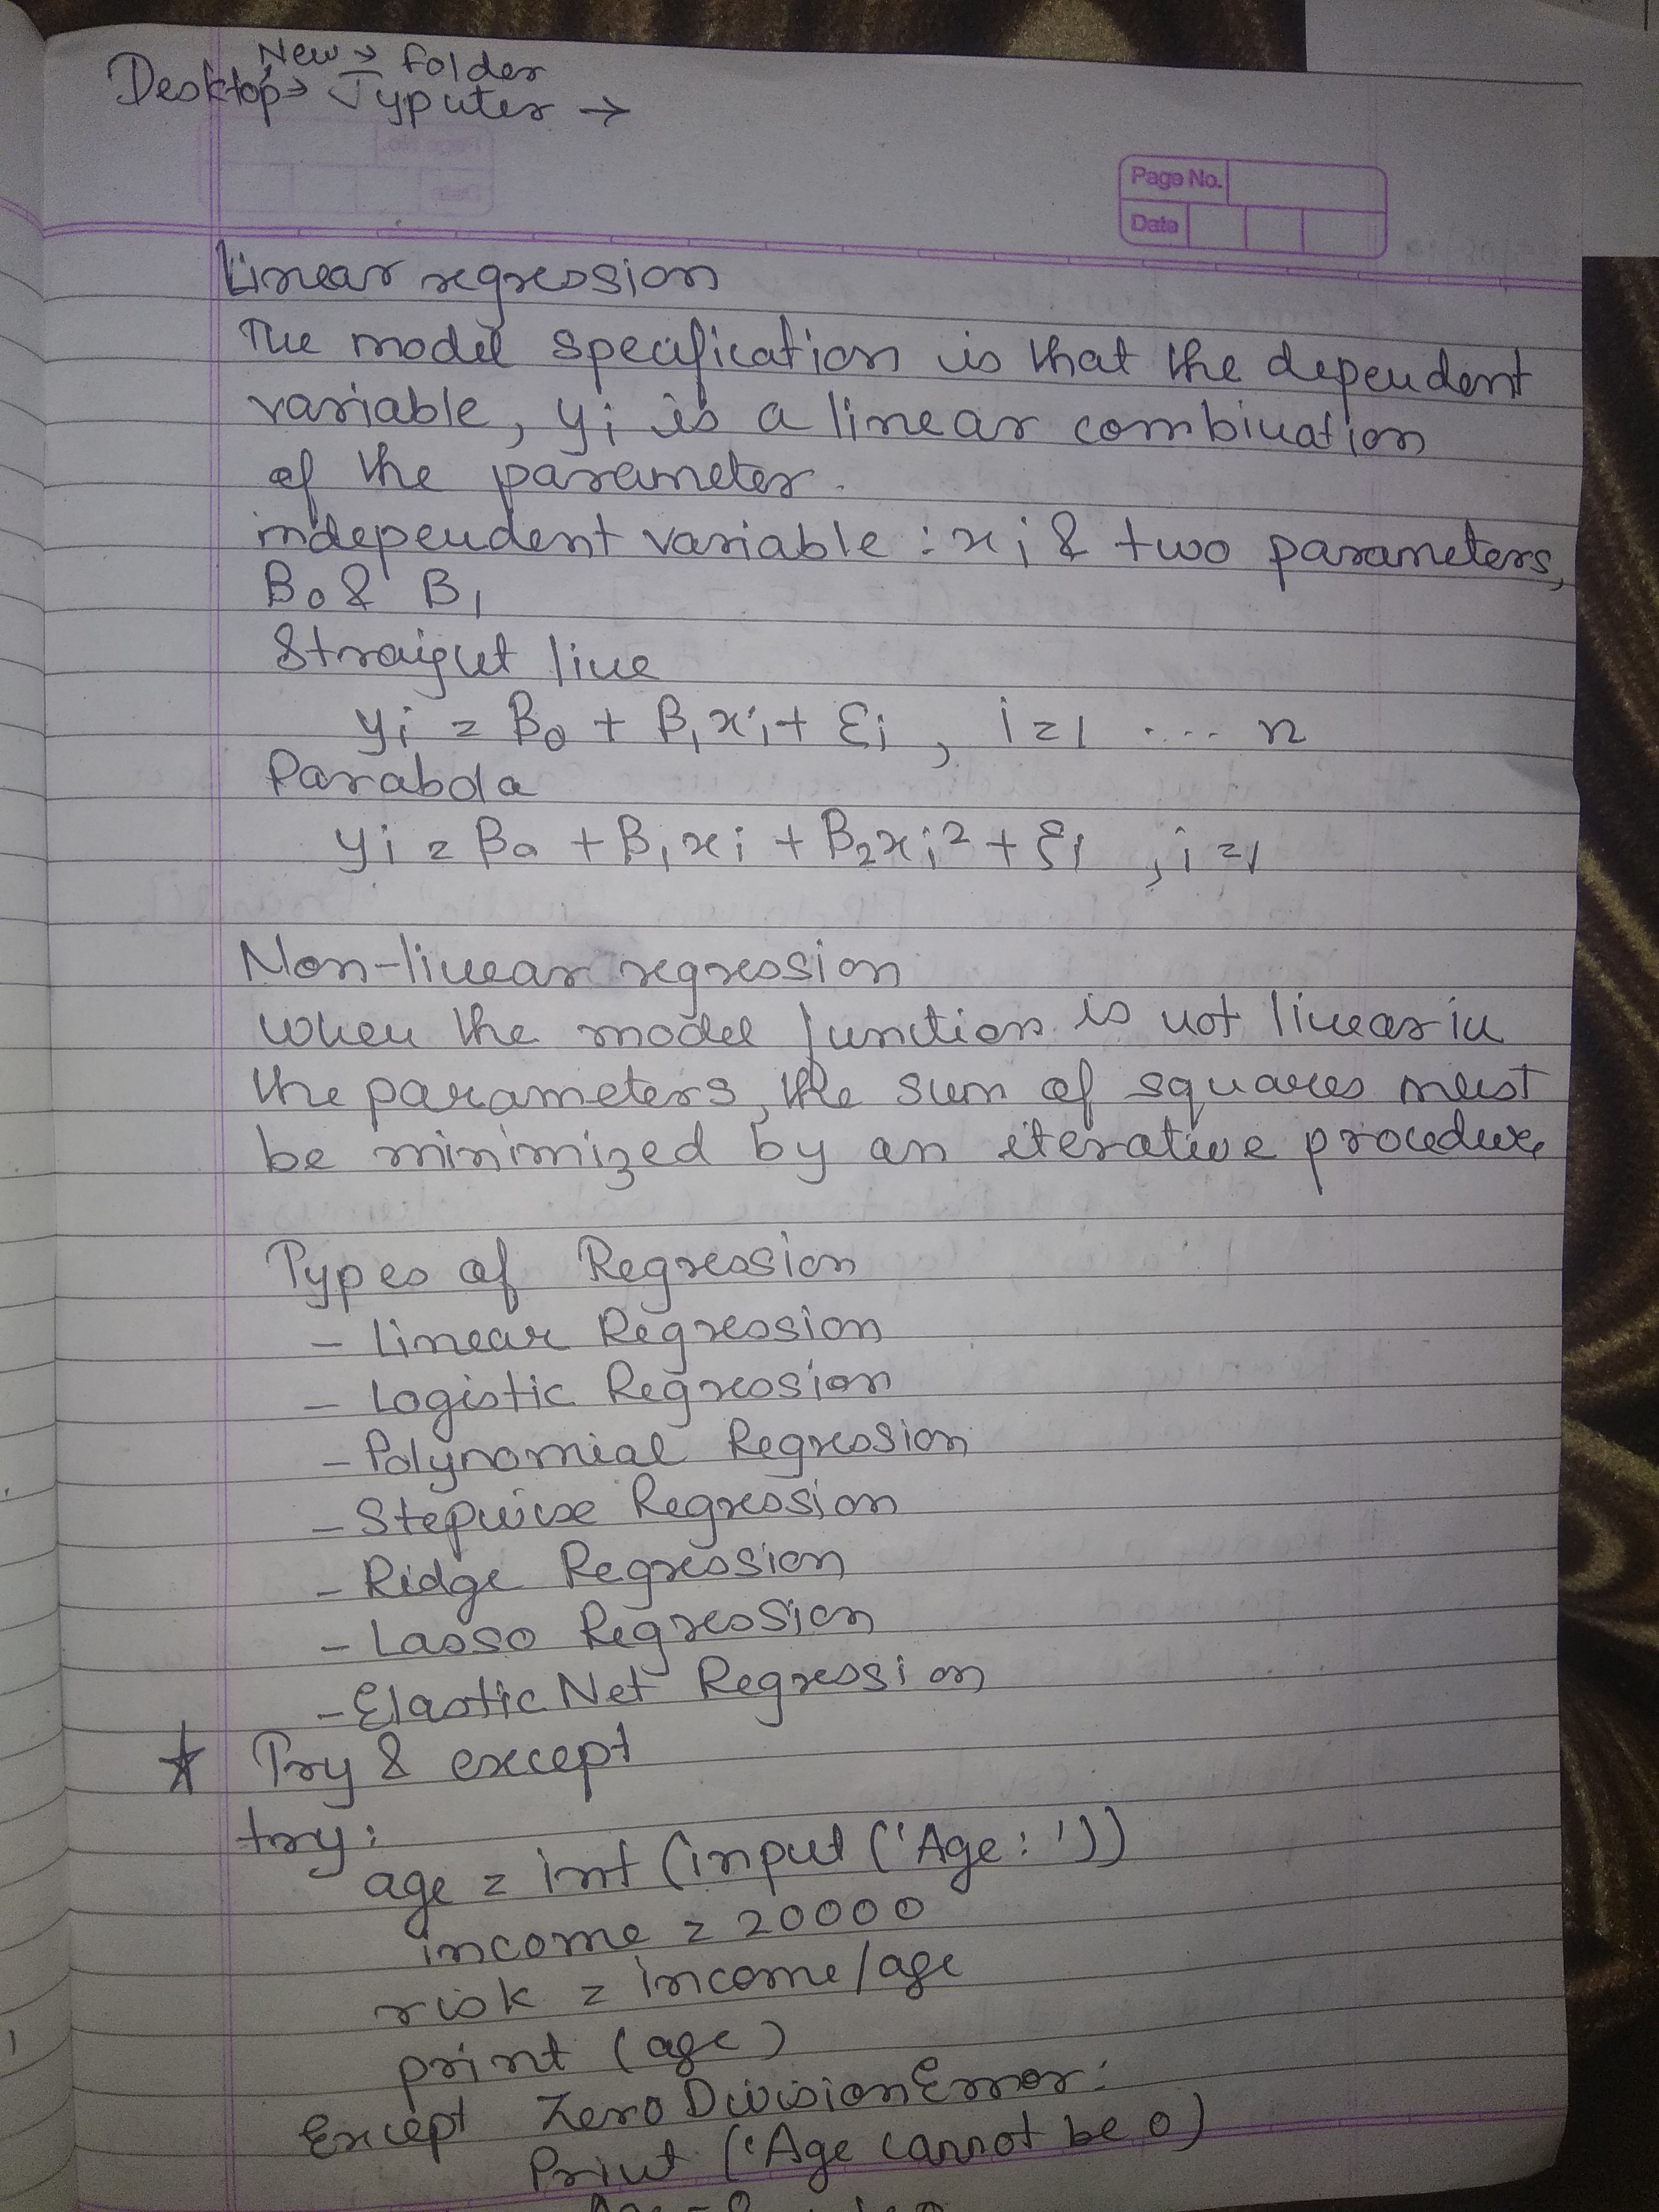 New → folder
Desktop → Jyputer →
Page No.
Date
Linear regression
The model specification is that the dependent
variable, yi is a linear combination
of the parameter.
independent variable : xi & two parameters,
B0 & B1
Straight line
yi = B0 + B1xi + Ɛi , i=1 .... n
Parabola
yi = B0 + B1xi + B2xi² + Ɛi , i=1
Non-linear regression
when the model function is not linear in
the parameters, the sum of squares must
be minimized by an iterative procedure
Types of Regression
- Linear Regression
- Logistic Regression
- Polynomial Regression
- Stepwise Regression
- Ridge Regression
- Lasso Regression
- Elastic Net Regression
☆ Try & except
try:
age = int (input ('Age: '))
income = 20000
risk = income/age
print (age)
Except ZeroDivisionError:
Print ('Age cannot be 0)